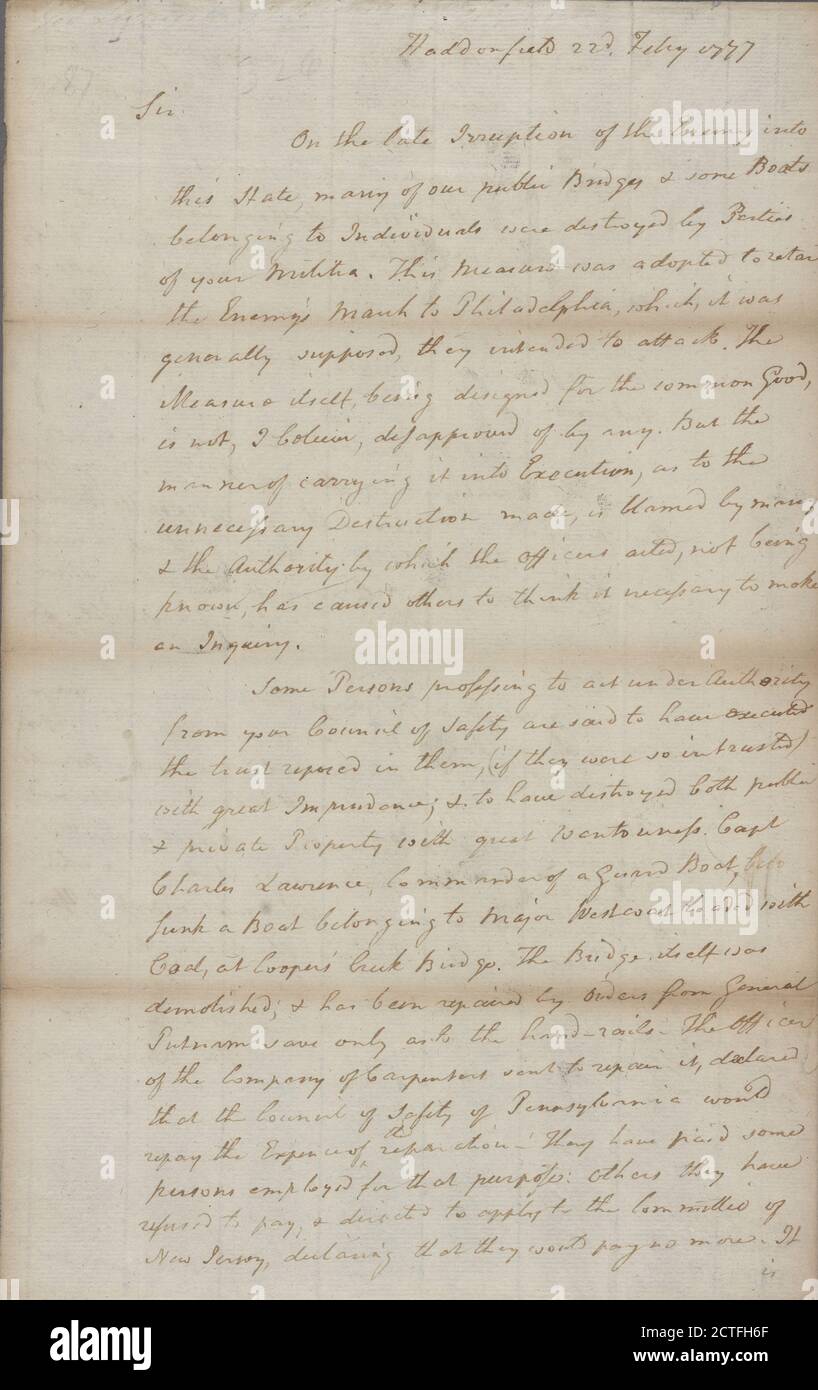 Haddonfield 22d. Feby 1777
Sir
On the late Irruption of the Enemy into
this State, many of our public Bridges & some Boats
belonging to Individuals were destroyed by Parties
of your Militia. This Measure was adopted to retar
the Enemy's March to Philadelphia, which, it was
generally supposed, they intended to attack. The
Measure itself, being designed for the common Good,
is not, I believe, disapproved of by any. But the
manner of carrying it into Execution, as to the
unnecessary Destruction made, is blamed by many,
& the Authority by which the Officers acted, not being
known, has caused others to think it necessary to make
an Inquiry.
Some Persons professing to act under Authority
from your Council of Safety are said to have executed
the trust reposed in them, (if they were so intrusted)
with great Imprudence; & to have destroyed both public
& private Property with great Wantonness. Capt
Charles Lawrence, Commander of a Guard Boat,
sunk a Boat belonging to Major Westcoat loaded with
Coal, at Cooper's Creek Bridge. The Bridge itself was
demolished; & has been repaired by Orders from General
Putnam save only as to the hand-rails. The Officer
of the Company of Carpenters sent to repair it, declared
that the Council of Safety of Pennsylvania would
repay the Expence of the reparation. They have paid some
persons employed for that purpose: others they have
refused to pay, & directed to apply to the Committee of
New Jersey, declaring that they would pay no more. It
is
alamy
a
alamy
Image ID: 2CTFH6F
www.alamy.com